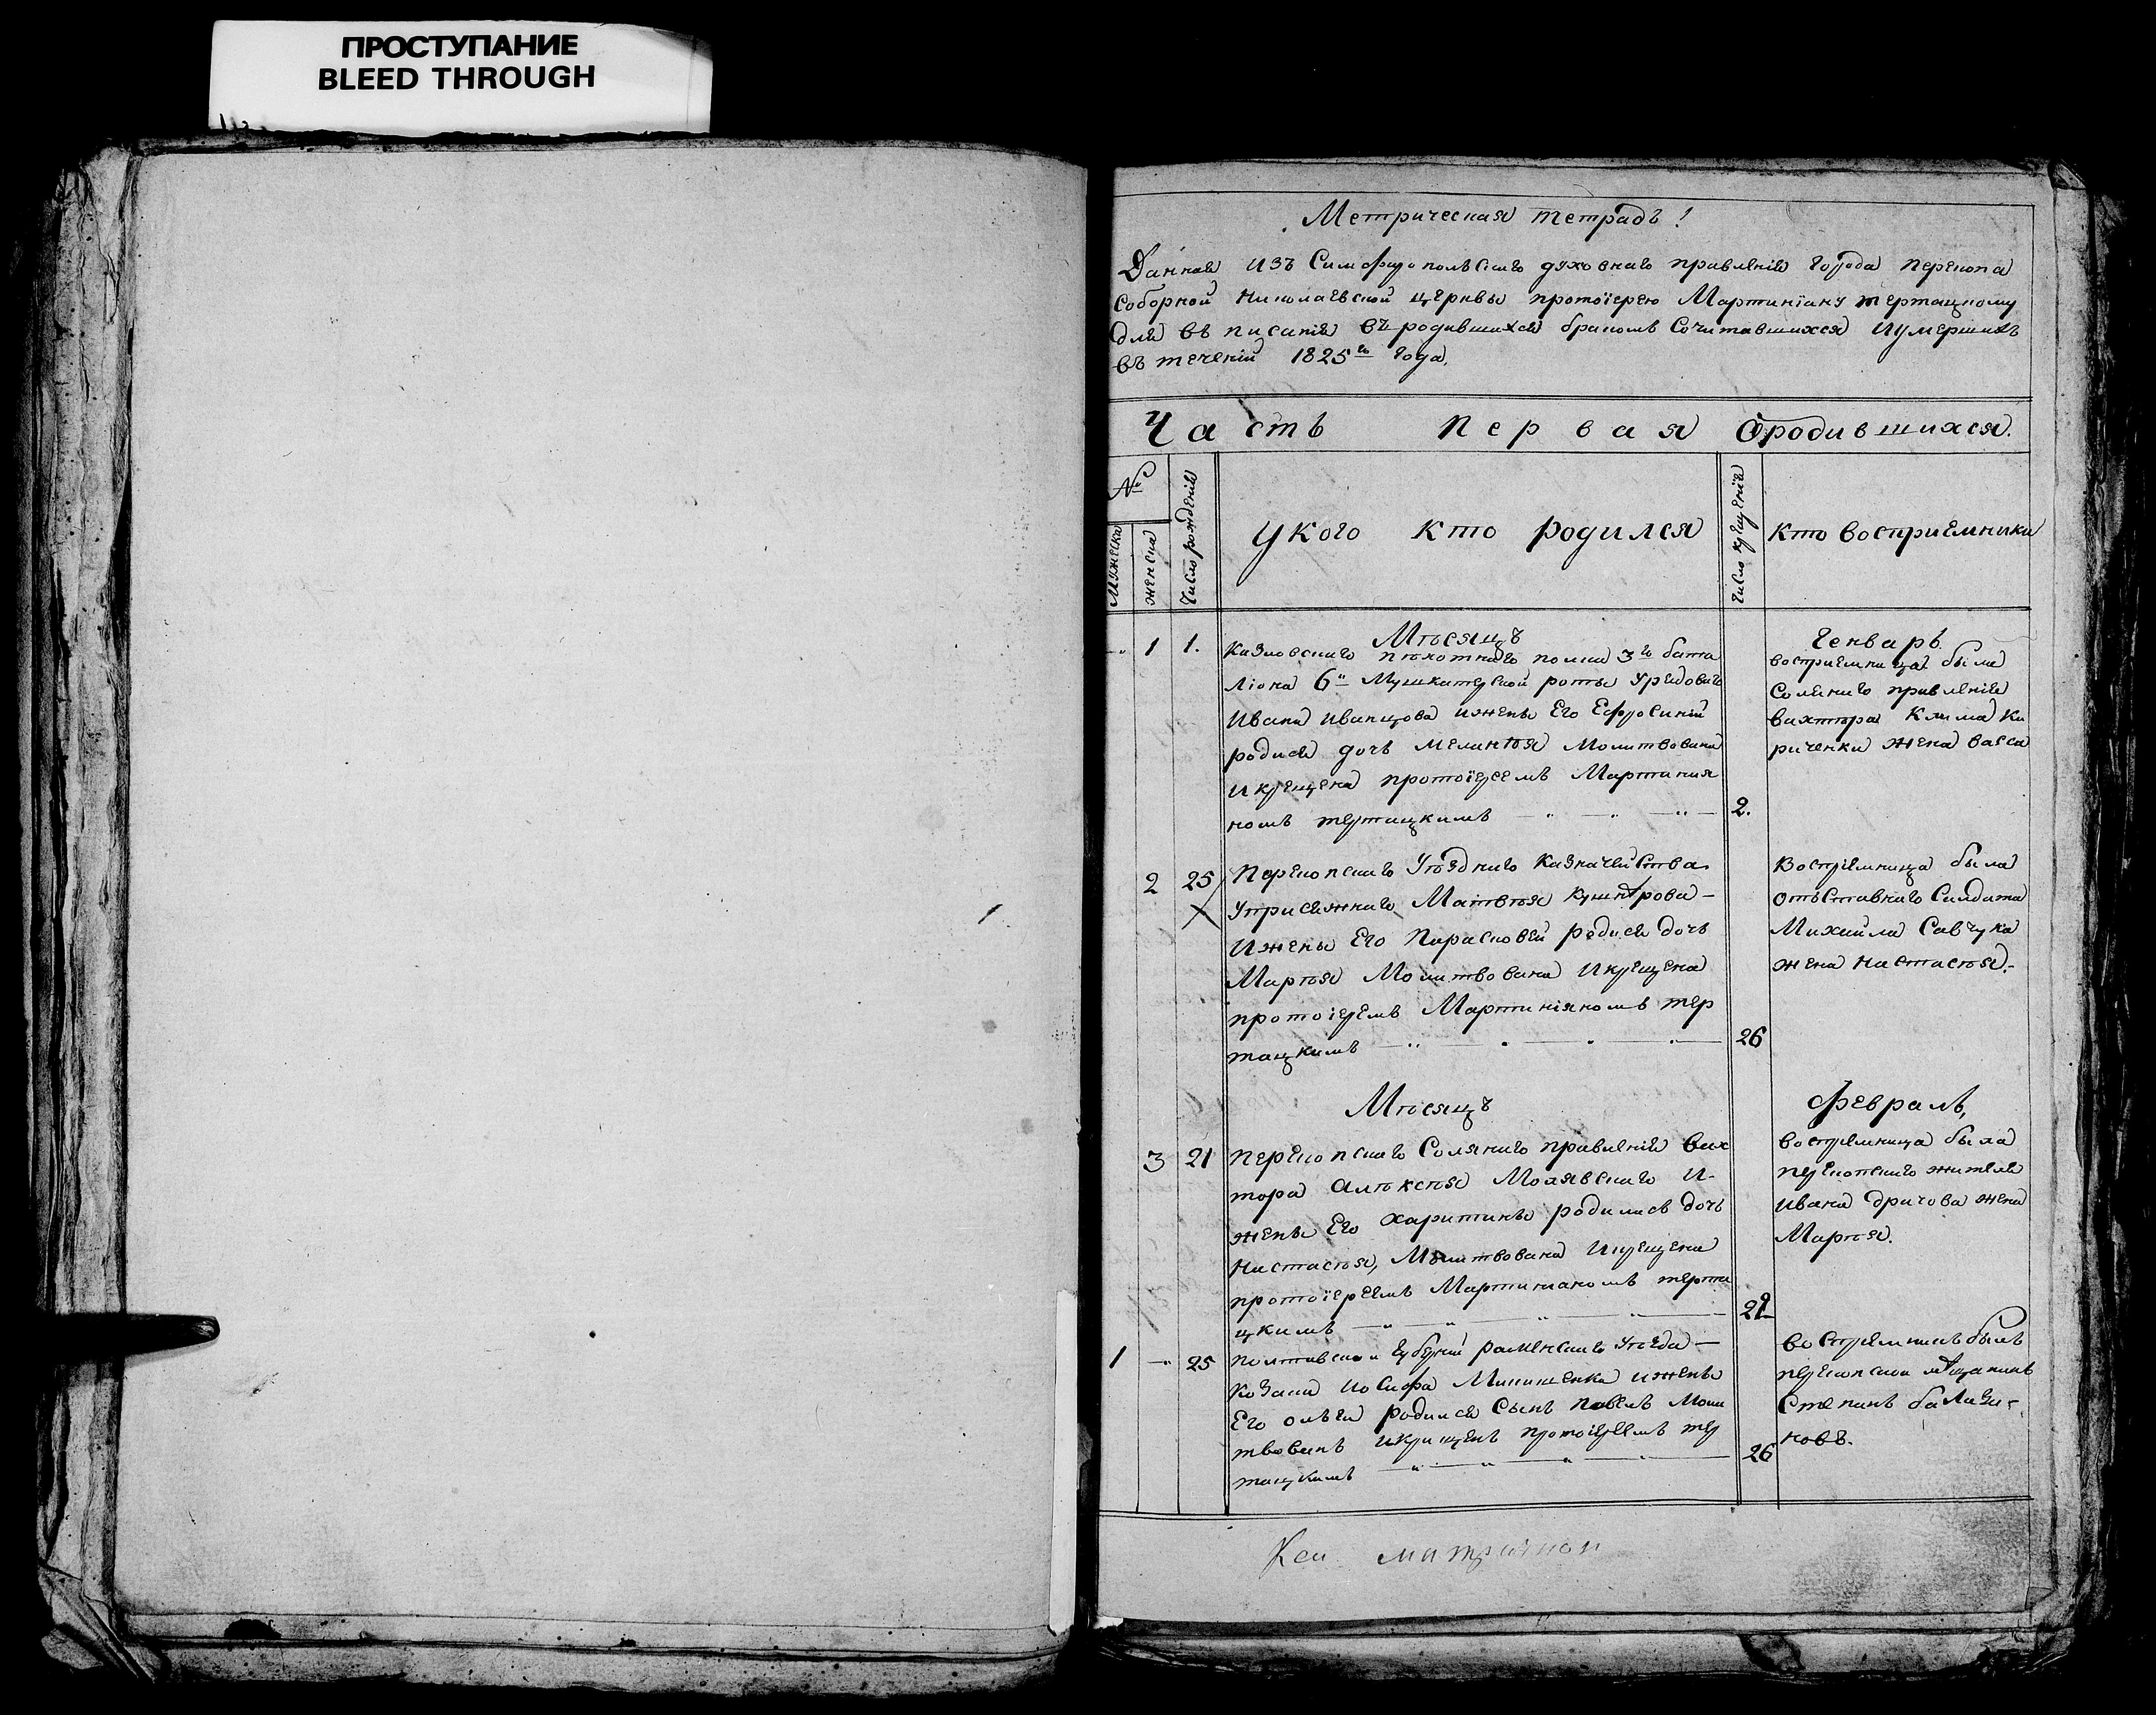 ПРОСТУПАНИЕ
BLEED THROUGH
Метрическая тетрадь!
Данная изъ Симферопольскаго духовнаго правленія города Перекопа
Соборной Николаевской церквы протоіерею Мартиніану Тертацкому
для въ писанія въ родившихся бракомъ Сочитавшихся и умершихъ
въ теченіи 1825го года.
Часть Первая О родившихся.
№
Мужеска
женска
Число рожденія
У кого кто родился
число крещенія
Кто восприемники
Мѣсяцъ
Генварь.
1 1. Казловскаго пѣхотнаго полка 3го бата
ліона 6й Мушкатерской роты
Ивана Иванцова и жены Его Ефросиніи
родися дочь Меланѣя Молитвована
и крещена протоіереемъ Мартиния
номъ тертацкимъ 2.
восприемница была
Солянаго правленія
вахтера Клима Ки
риченки жена васса
2 25 Перекопскаго Уѣзднаго Казначейства
Уприсяжнаго Матвѣя
И жены Его Парасковеи родися дочь
Марѳя Молитвована И крещена
протоіереемъ Мартиніяномъ тер
тацкимъ 26
Восприемница была
отъставнаго Салдата
Михаила Савчука
жена Настасѣя.
Мѣсяцъ
Февраль,
3 21 Перекопскаго Солянаго правленія вах
тора Алѣксѣя Молявскаго И-
жены Его Харитины родилась дочь
Настасѣя, Молитвована И крещена
протоіереемъ Мартинианомъ терта
цкимъ
восприемница была
перекопскаго жителя
Ивана жена
Марѳя.
1 25 Полтавскои губерніи Раменскаго Уѣзда
Казака Иосифа Миниженка и жены
Его олѣги родился Сынъ Павелъ Моли
твованъ и крищенъ протоіереемъ тер
тацкимъ 26
восприемникъ былъ
перекопскои мѣщанинъ
Степанъ
новъ.